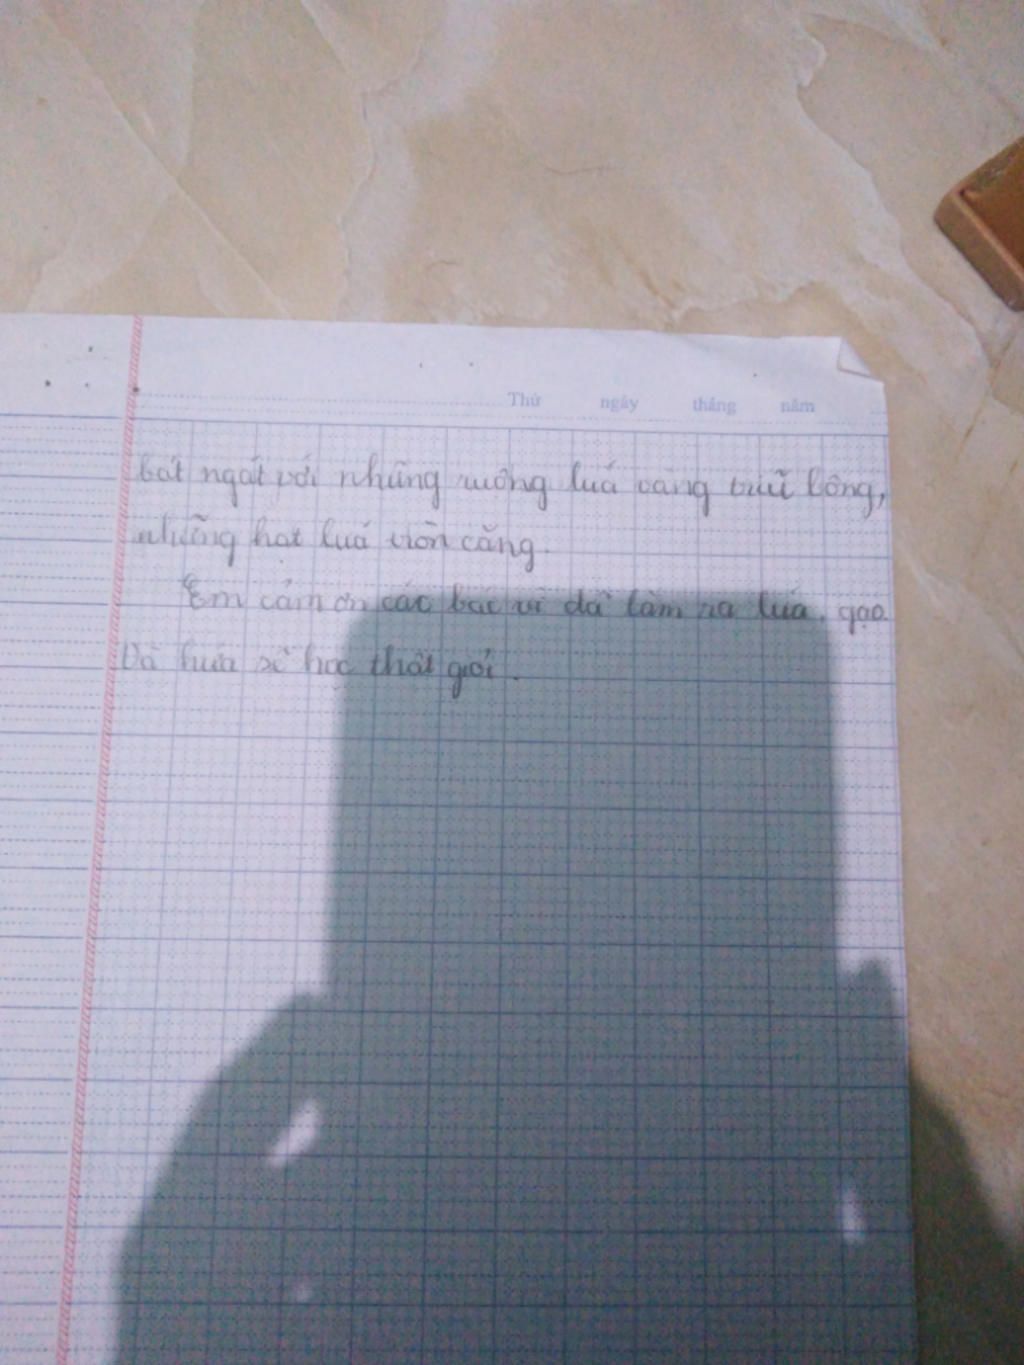 Thứ ngày tháng năm
bát ngát với những ruộng luá vàng trĩu bông,
những hạt luá tròn căng.
Em cảm ơn các bác vì đã làm ra luá, gạo.
Và hứa sẽ học thật giỏi.